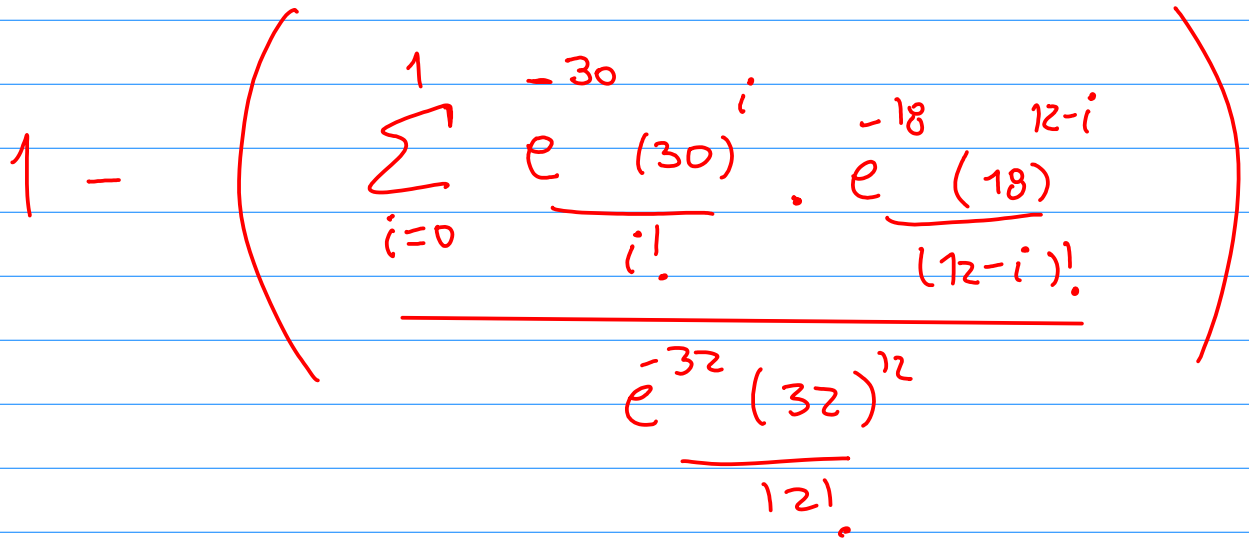 1 - ( \frac{\sum_{i=0}^{1} \frac{e^{-30} (30)^{i}}{i!} \cdot \frac{e^{-18} (18)^{12-i}}{(12-i)!}}{\frac{e^{-32} (32)^{12}}{12!}} )